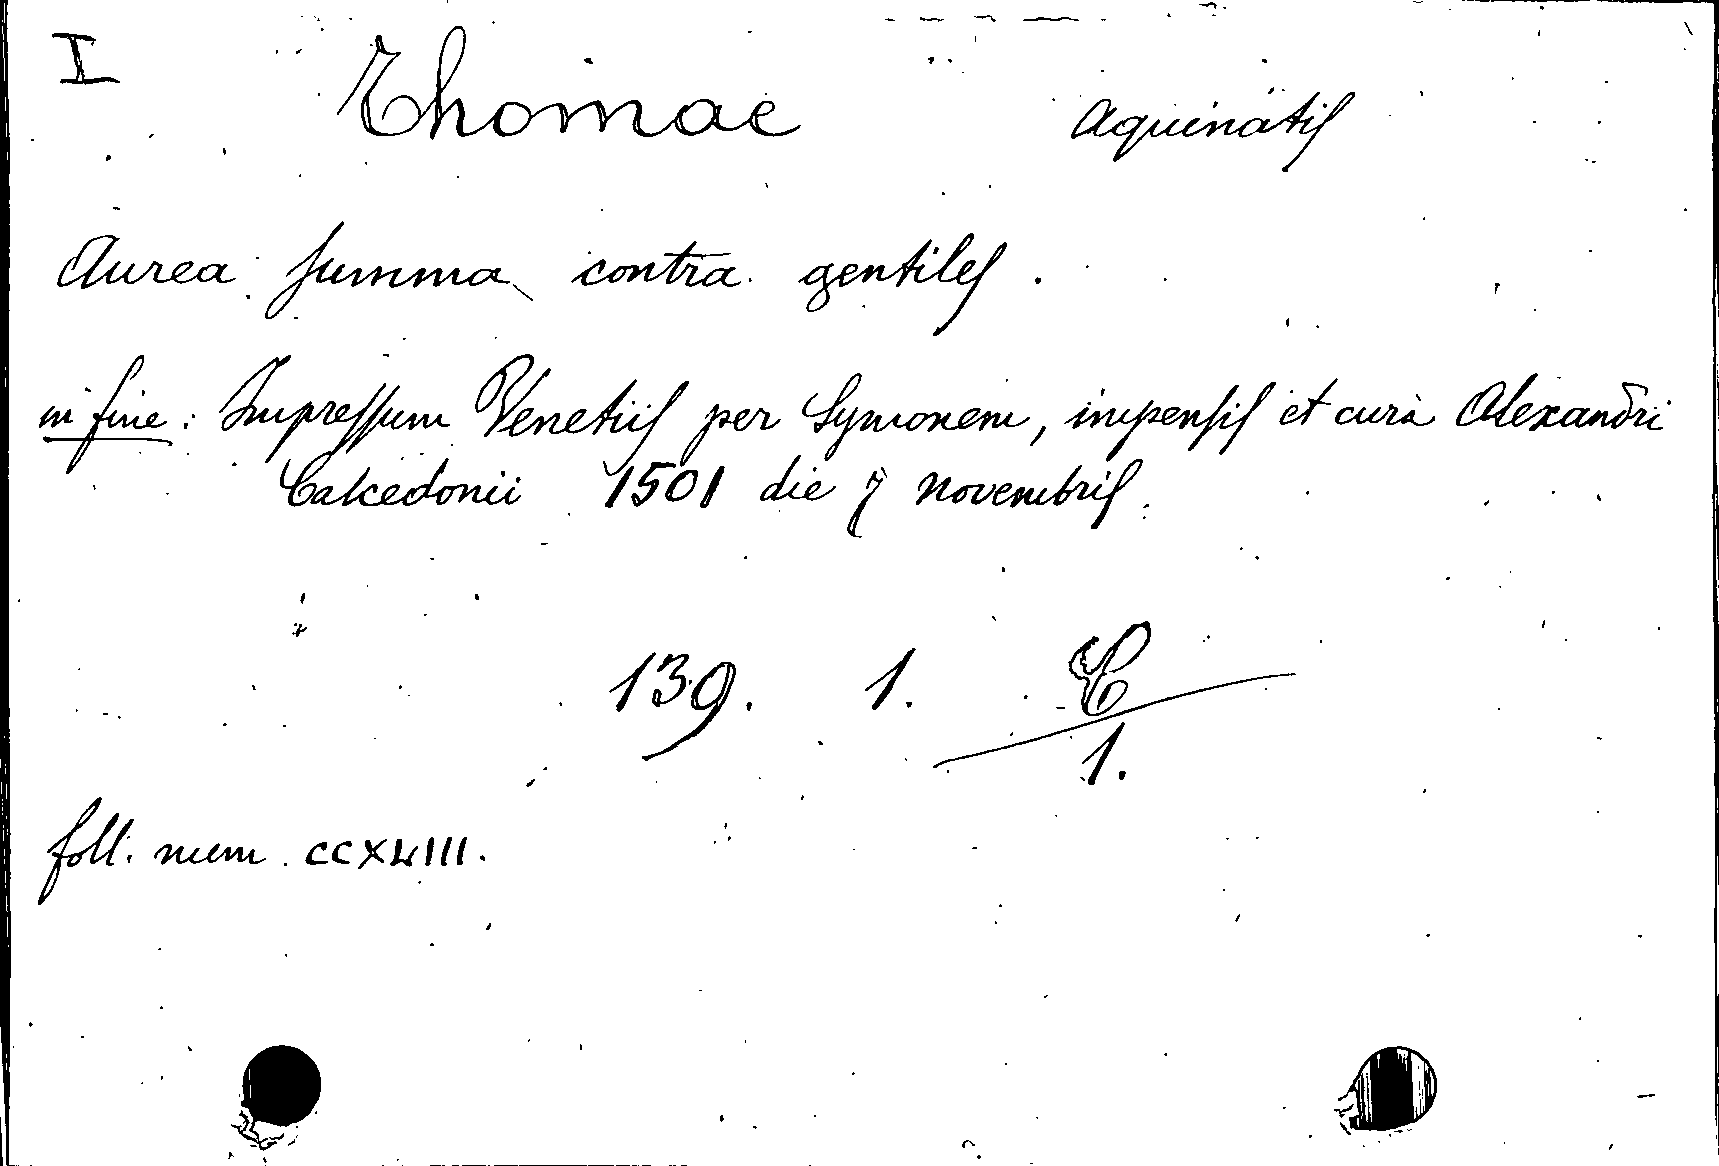 I
Thomae Aquinatis
Aurea summa contra gentiles.
in fine: Impressum Venetiis per Symonem, impensis et cura Alexandri
Calcedonii 1501 die 7 novembris.
139. 1. C
1.
foll. num. CCXLIII.